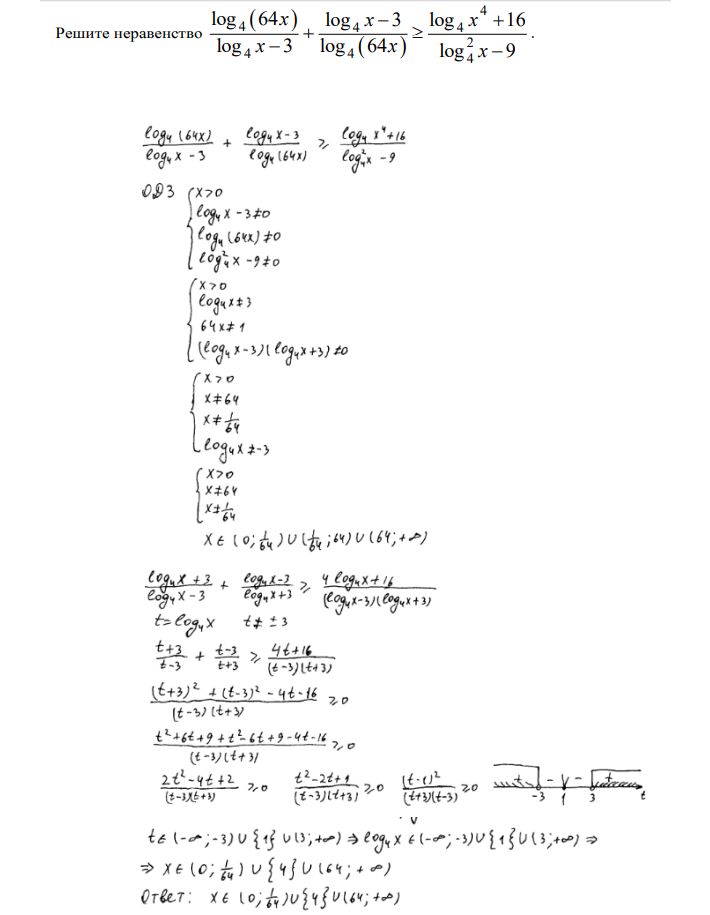 Решите неравенство log₄(64x)/(log₄x−3) + (log₄x−3)/log₄(64x) ≥ (log₄x⁴+16)/(log₄²x−9).
log₄(64x)/(log₄x−3) + (log₄x−3)/log₄(64x) ≥ (log₄x⁴+16)/(log₄²x−9)
ОДЗ { x>0
log₄x−3≠0
log₄(64x)≠0
log₄²x−9≠0
{ x>0
log₄x≠3
64x≠1
(log₄x−3)(log₄x+3)≠0
{ x>0
x≠64
x≠1/64
log₄x≠−3
{ x>0
x≠64
x≠1/64
x∈(0;1/64)∪(1/64;64)∪(64;+∞)
(log₄x+3)/(log₄x−3) + (log₄x−3)/(log₄x+3) ≥ (4log₄x+16)/((log₄x−3)(log₄x+3))
t=log₄x t≠±3
(t+3)/(t−3) + (t−3)/(t+3) ≥ (4t+16)/((t−3)(t+3))
((t+3)²+(t−3)²−4t−16)/((t−3)(t+3)) ≥0
(t²+6t+9+t²−6t+9−4t−16)/((t−3)(t+3)) ≥0
(2t²−4t+2)/((t−3)(t+3)) ≥0 (t²−2t+1)/((t−3)(t+3)) ≥0 (t−1)²/((t+3)(t−3)) ≥0 + − − + −3 1 3 t
t∈(−∞;−3)∪{1}∪(3;+∞) ⇒ log₄x∈(−∞;−3)∪{1}∪(3;+∞) ⇒
⇒ x∈(0;1/64)∪{4}∪(64;+∞)
Ответ: x∈(0;1/64)∪{4}∪(64;+∞)